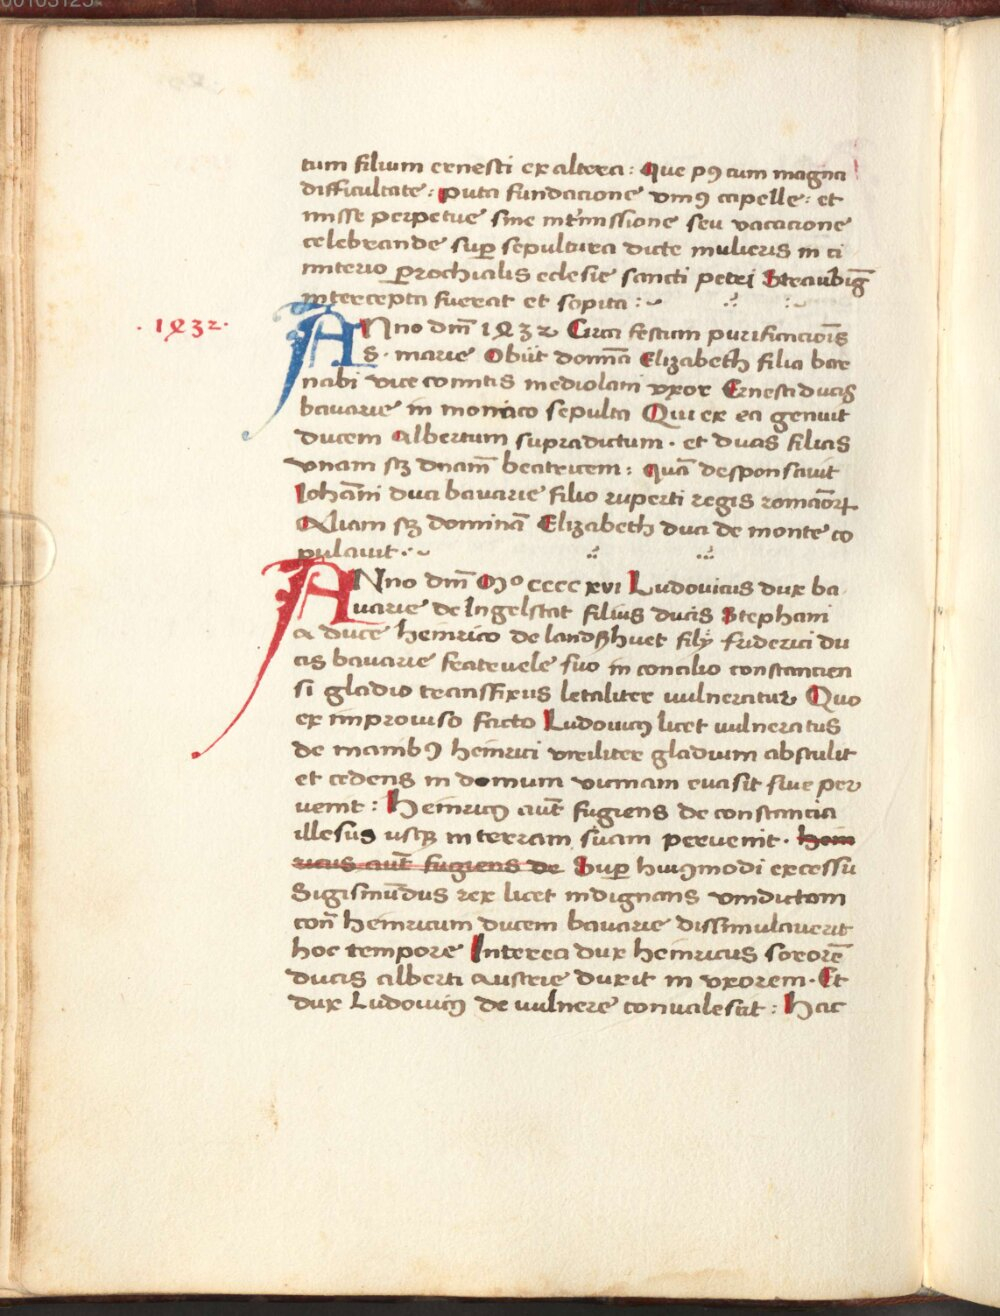 tum filium ernesti ex altera: Que pꝰ cum magna
difficultate: puta fundacione vniꝰ capelle: et
misse perpetue sine int̄missione seu vacacione
celebrande suꝑ sepultura dicte mulieris in ci
miterio ꝑrochialis eclesie sancti petri Straubīg
intercepta fuerat et sopita:~
·1432·
ANno dm̄ 1432 Circa festum purificacioīs
S· marie Obiit domīa Elizabeth filia bar
nabi vice comitis mediolani vxor Ernesti ducis
bavarie in monaco sepulta Qui ex ea genuit
ducem Albertum supradictum· et duas filias
vnam sꝫ dnam̄ beatricem: quā desponsavit
Johāni duci bavarie filio ruperti regis romāoꝝ
Aliam sꝫ dominā Elizabeth duci de monte co
pulavit·~
ANno dm̄ Mº cccc xvi Ludovicus dux ba
varie de Ingelstat filius ducis Stephani
a duce heinrico de landßhuet filÿ friderici du
cis bavarie featevele suo in concilio constancien
si gladio transfixus letaliter vulneratur Quo
ex improviso facto Ludovicꝰ licet vulneratus
de manibꝰ heinrici viriliter gladium abstulit
et cedens in domum vicinam evasit sive per
venit: Heinricꝰ aut̄ fugiens de constancia
illesus usqꝫ in terram suam pervenit· hein
ricus aut̄ fugiens de Suꝑ huiꝰmodi excessu
Sigismūdus rex licet indignans vindictam
con̄ heinricum ducem bavarie dissimulaverit
hoc tempore Interea dux heinricus sororē
ducis alberti austrie duxit in vxorem· Et
dux Ludovicꝰ de vulnere convalescit: Hac